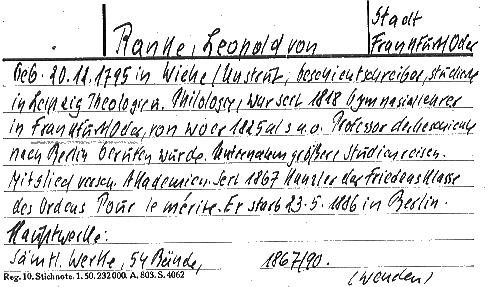 Stadt
Ranke, Leopold von Frankfurt Oder
Geb. 20.12.1795 in Wiehe/Unstrut, Geschichtschreiber, studierte
in Leipzig Theologie u. Philologie, war seit 1818 Gymnasiallehrer
in Frankfurt Oder, von wo er 1825 als a.o. Professor der Geschichte
nach Berlin berufen wurde. Unternahm größere Studienreisen.
Mitglied versch. Akademien. Seit 1867 Kanzler der Friedensklasse
des Ordens Pour le mérite. Er starb 23.5.1886 in Berlin.
Hauptwerke:
Sämtl. Werke, 54 Bände, 1867/90.
Reg. 10. Stichnote. 1. 50. 232000. A. 803. S. 4062 (wenden)